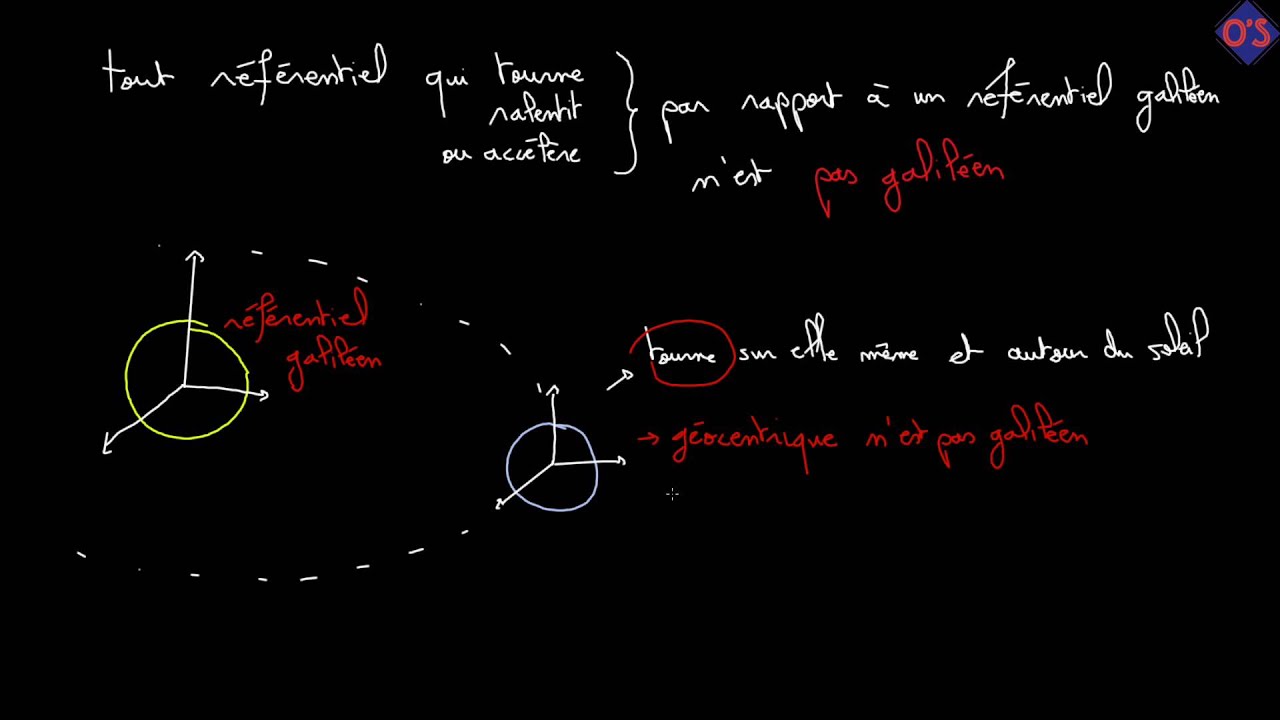 O'S
tout référentiel qui tourne
ralentit
ou accélère
par rapport à un référentiel galiléen
n'est pas galiléen
référentiel
galiléen
tourne sur elle même et autour du soleil
→ géocentrique n'est pas galiléen